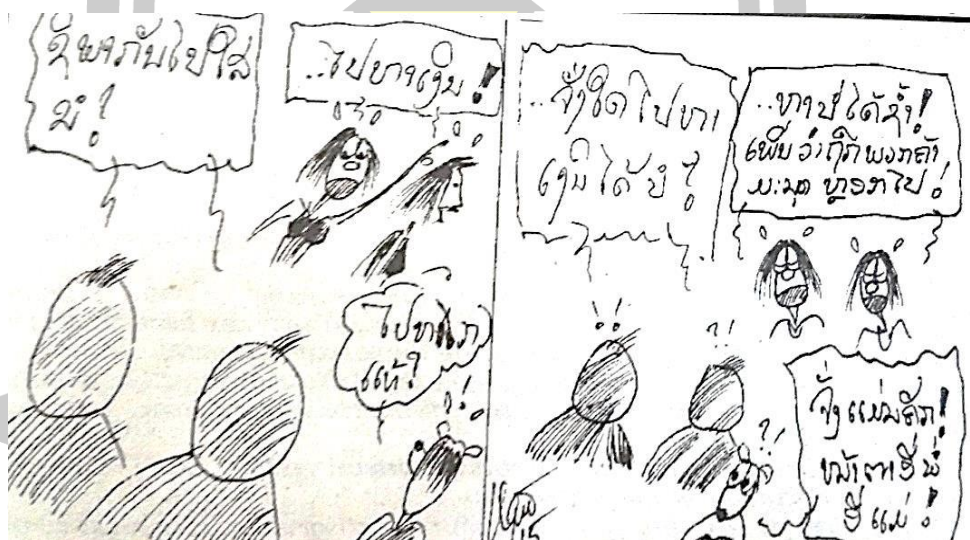 ຊິພາກັນໄປໃສ່
ນໍ?
..ໄປຫາເງິນ!
ໄປຫາ
ແທ້?
..ຈັ່ງໃດໄປຫາ
ເງິນໄດ້ບໍ່?
..ຫາບໍ່ໄດ້ຊໍ້າ!
ເພິ່ນວ່າຖືກພວກຄ້າ
ມະນຸດ ຫຼອກໄປ!
ຈັ່ງແມ່ນຄັກ!
ໜ້າຕາອີ່ພໍ່
ອີ່ແມ່!